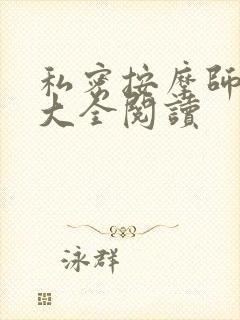 私密按摩師
大全閱讀
泳群